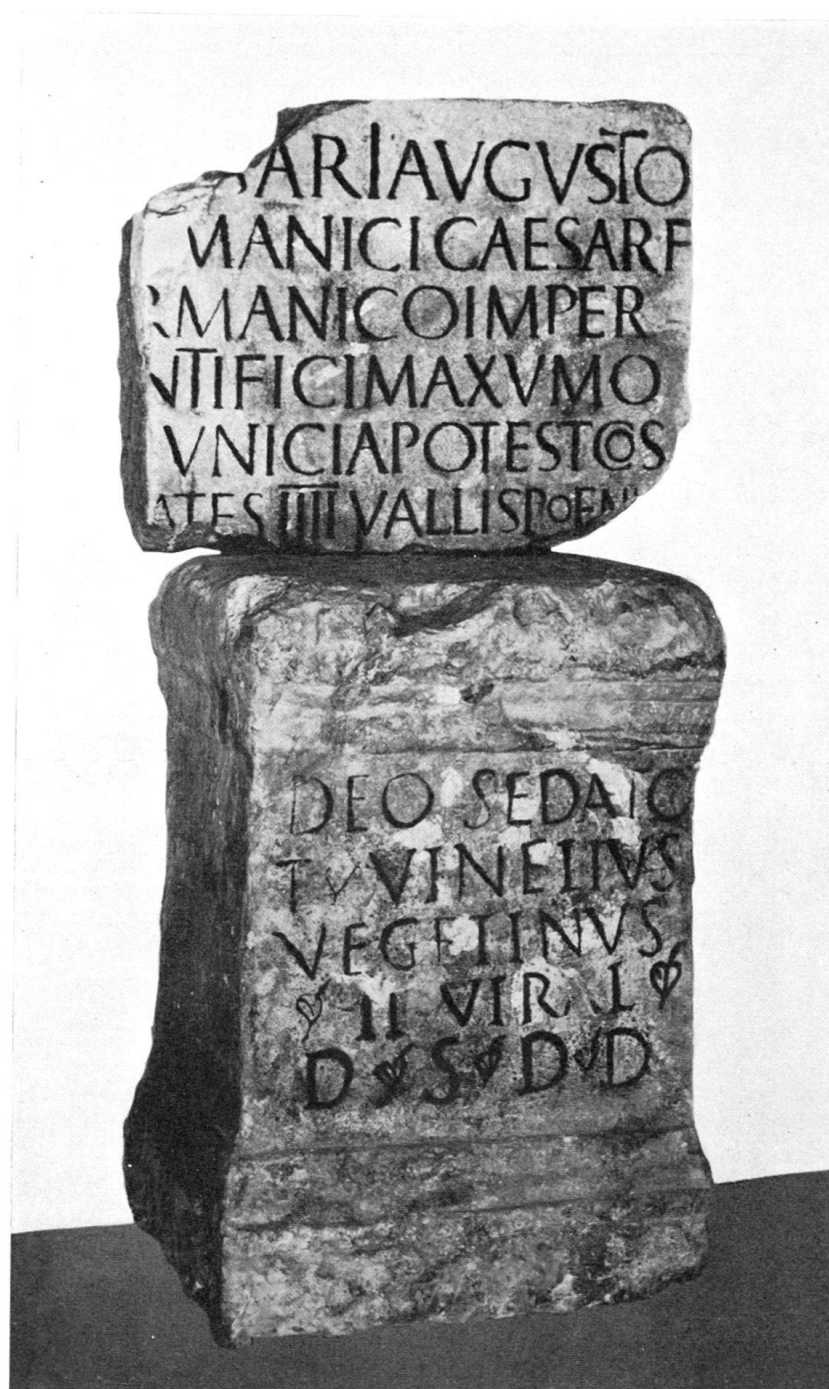 ARI AVGVSTO
MANICI CAESAR F
RMANICO IMPER
NTIFICI MAXVMO
VNICIA POTEST COS
ATES IIII VALLIS POENI
DEO SEDATO
VINELIVS
VEGETINVS
II VIRAL
D S D D